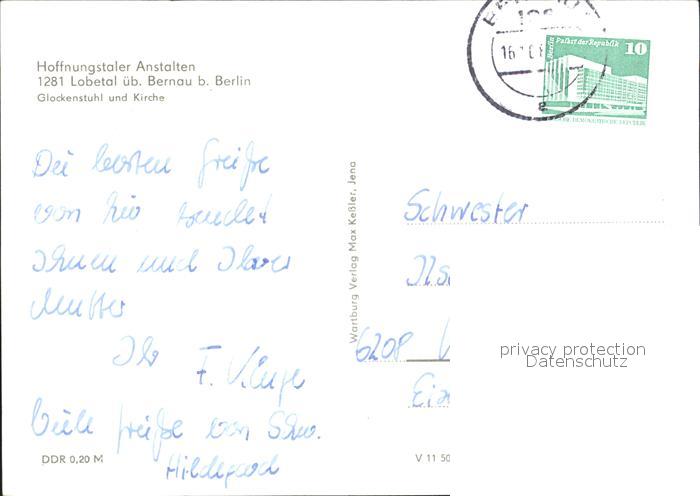 Hoffnungstaler Anstalten
1281 Lobetal üb. Bernau b. Berlin
Glockenstuhl und Kirche
Berlin Palast der Republik 10
16
Die besten Grüße
von hier sendet
Ihnen und Ihrer
Mutter
Ihr
F.
Viele Grüße von Schw.
Hildegard
DDR 0,20 M
Wartburg Verlag Max Keßler, Jena
Schwester
Ils
6208
V 11 50
privacy protection
Datenschutz